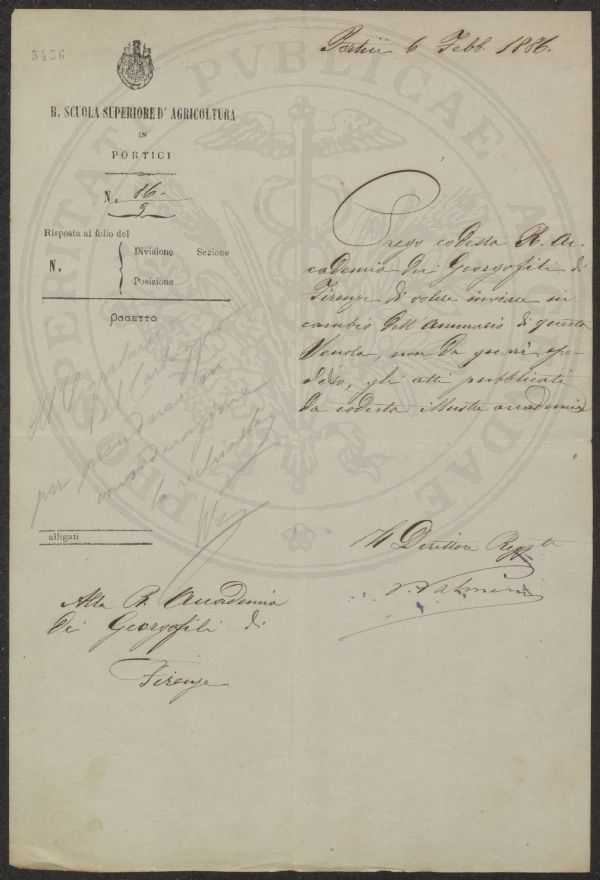 5456
Portici 6 Febb. 1886.
R. SCUOLA SUPERIORE D'AGRICOLTURA
IN
PORTICI
N. 86
3
Risposta al folio del
N.
Divisione Sezione
Posizione
OGGETTO
Prego codesta R. Ac-
cademia dei Georgofili di
Firenze di volere inviare in
cambio dell'Annuario di questa
Scuola, non da guari spe-
dito, gli atti pubblicati
da codesta illustre accademia
per prendere in
considerazione
la richiesta
alligati
Il Direttore Regg.te
Alla R. Accademia
dei Georgofili di
Firenze
PROSPERITATI PVBLICAE AVGENDAE